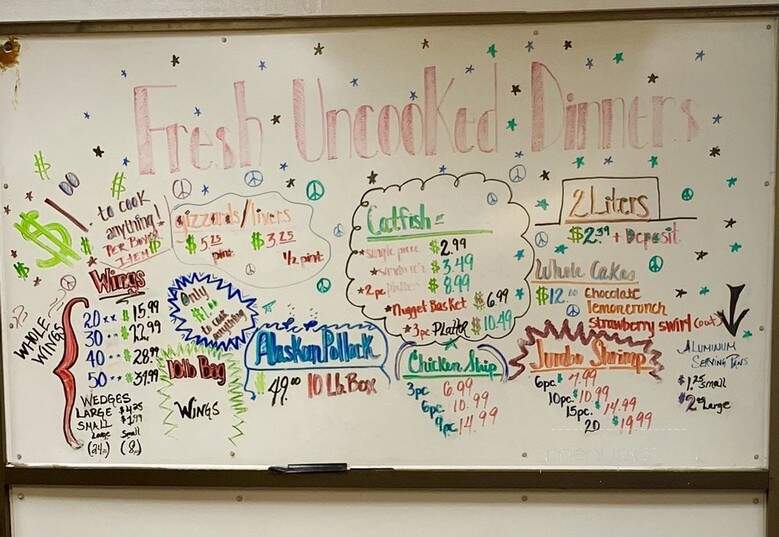 Fresh Uncooked Dinners
$1.00
to cook
anything!
PER BOXED
ITEM
gizzards/livers
$5.25 $3.25
pint 1/2 pint
Catfish =
*single piece $2.99
*sandwich $3.49
*2pc $8.99
*Nugget Basket $6.99
*3pc Platter $10.49
2 Liters
$2.39 + Deposit
Whole Cakes
$12.00 Chocolate
lemoncrunch
strawberry swirl (out)
WHOLE
WINGS
Wings
20 $15.99
30 $22.99
40 $28.99
50 $34.99
WEDGES
LARGE $4.25
SMALL $1.99
Large Small
(24") (8")
Only
$1.00
to cook
anything
10lb Bag
WINGS
Alaskan Pollock
$49.00 10 Lb. Box
Chicken Strip
3pc 6.99
6pc 10.99
9pc 14.99
Jumbo Shrimp
6pc $7.99
10pc $10.99
15pc $14.99
20 $19.99
ALUMINUM
SERVING PANS
$1.25 small
Large